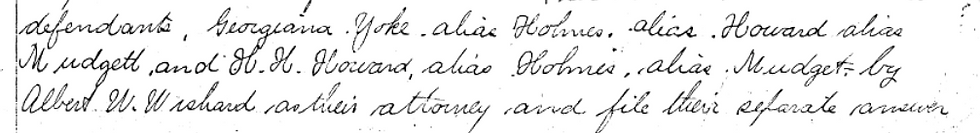 defendants, Georgiana Yoke alias Holmes. alias Howard alias
Mudgett, and H. H. Howard, alias Holmes, alias Mudget- by
Albert W. Wishard as their attorney and file their separate answer